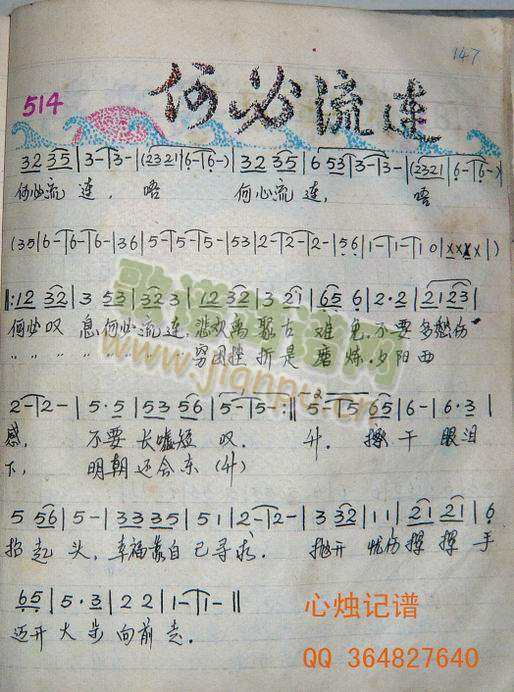 147
514
何必流连
3 2 3 5 | 3 - | 3 - | (2 3 2 1 | 6 - | 6 -) | 3 2 3 5 | 6 5 3 | 3 - | 3 - | (2 3 2 1 | 6 - | 6 -) |
何必流 连, 唔 何必流 连, 唔
(3 5 | 6 - | 6 - | 6 - | 3 6 | 5 - | 5 - | 5 - | 5 3 | 2 - | 2 - | 2 - | 5 6 | 1 - | 1 - | 1 0 | x x x x | )
‖: 1 2 3 2 | 3 5 3 | 3 2 3 | 1 2 3 2 | 3 2 1 | 6 5 6 | 2 · 2 | 2 1 2 3 |
何必叹 息,何必流连,悲欢离聚古 难免,不要 多愁伤
〃 〃 〃 〃 〃 〃 〃 穷困挫折是 磨炼,夕阳西
2 - | 2 - | 5 · 5 | 5 3 5 6 | 5 - | 5 - :‖ 5 - | 5 6 5 | 6 - | 6 · 3 |
感, 不要 长嘘短 叹. 升. 擦干 眼泪
下, 明朝还会东 (升)
5 5 6 | 5 - | 3 3 3 5 | 5 1 | 2 - | 2 - | 3 3 2 | 1 1 | 2 1 2 1 | 6
抬起 头, 幸福靠自己寻求. 抛开 忧伤挥 挥 手
6 5 | 5 · 3 | 2 2 | 1 - | 1 - ‖
迈开 大步 向前 走.
歌谱简谱网
www.jianpu.cn
心烛记谱
QQ 364827640